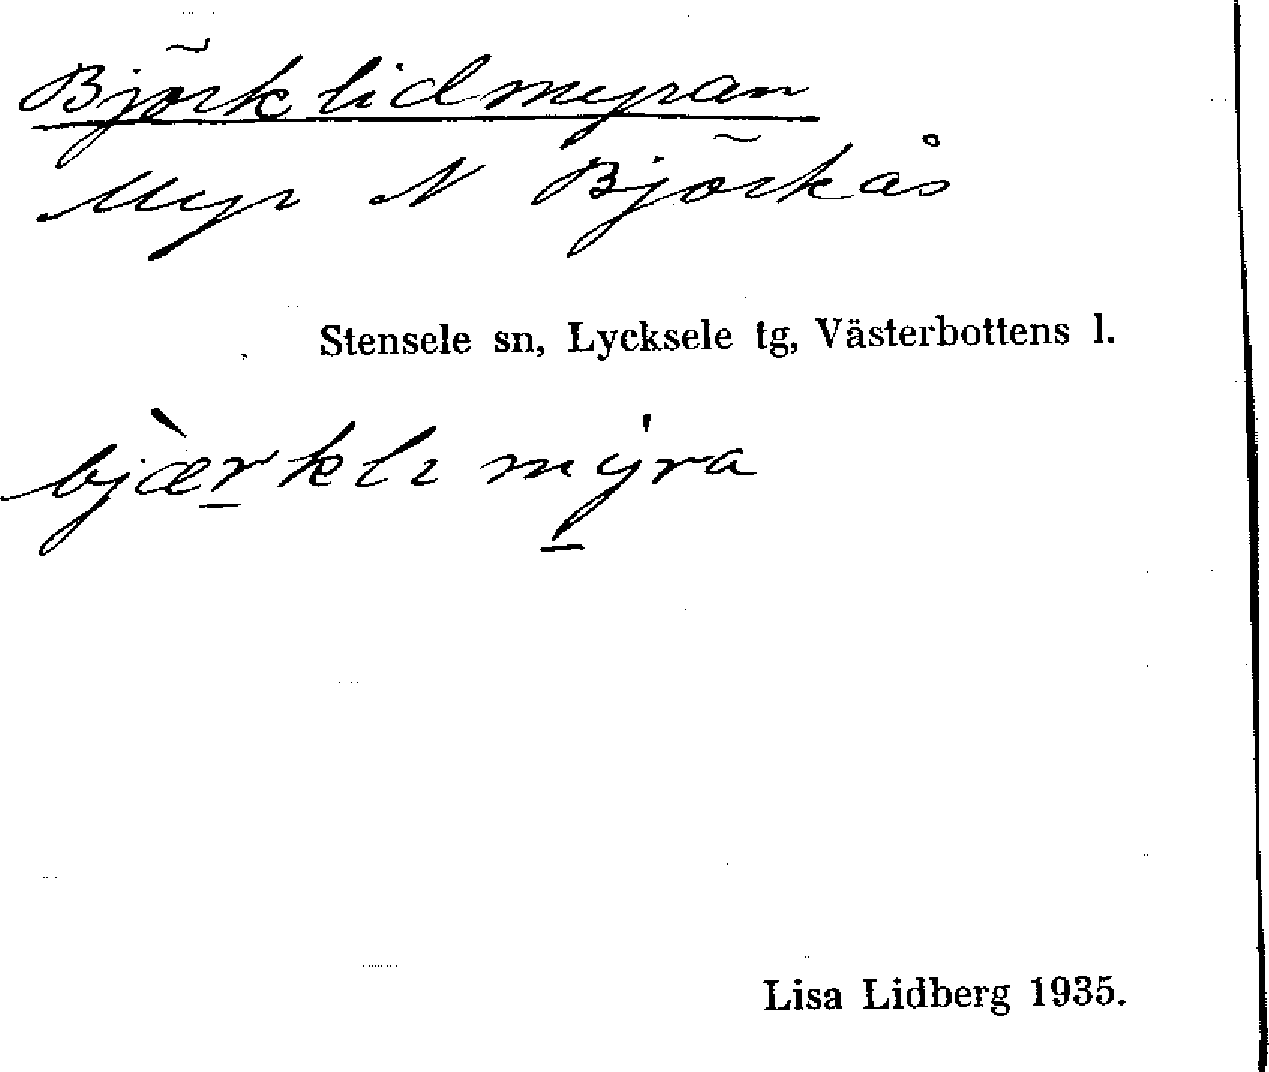 Björklidmyran
Myr N Björkås
Stensele sn, Lycksele tg, Västerbottens l.
bjæ̀rklɩmýra
Lisa Lidberg 1935.